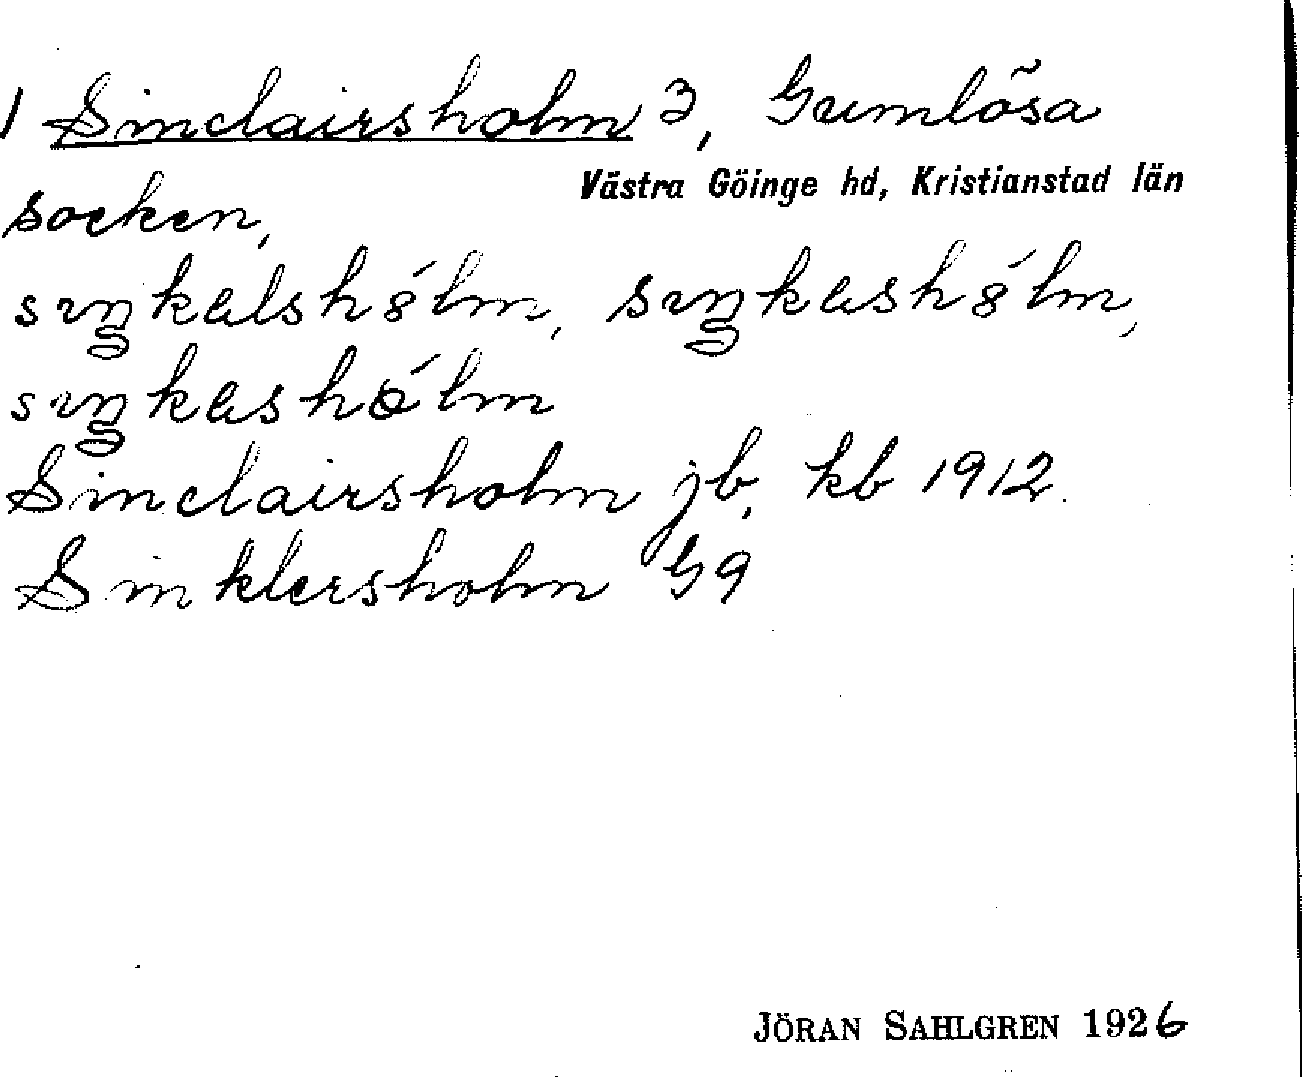 1 Sinclairsholm 3, Gumlösa
Västra Göinge hd, Kristianstad län
socken,
sıŋkalshólm, sıŋkashólm,
sıŋkashólm
Sinclairsholm jb, kb 1912.
Sinklersholm G9
JÖRAN SAHLGREN 1926